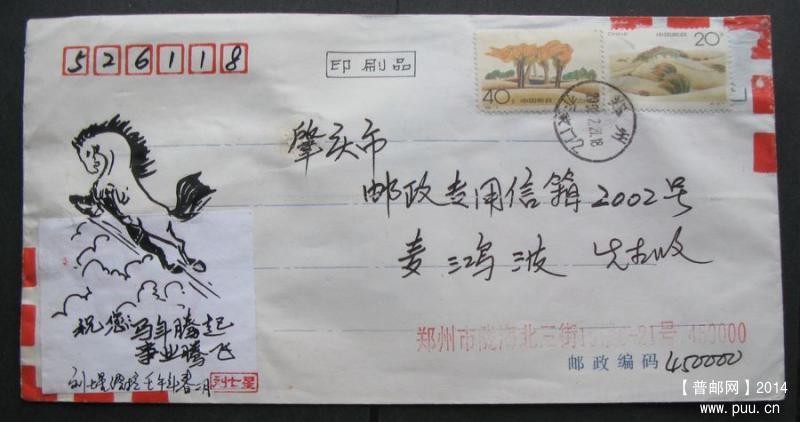 526118
印刷品
40分 中国邮政
20分
中国邮政
郑州
肇庆市
邮政专用信箱2002号
麦鸿波 先生收
祝您：马年腾起
事业腾飞
壬午年春月
刘七星
郑州市陇海北三街
21号.450000
邮政编码 450000
【普邮网】2014
www.puu.cn